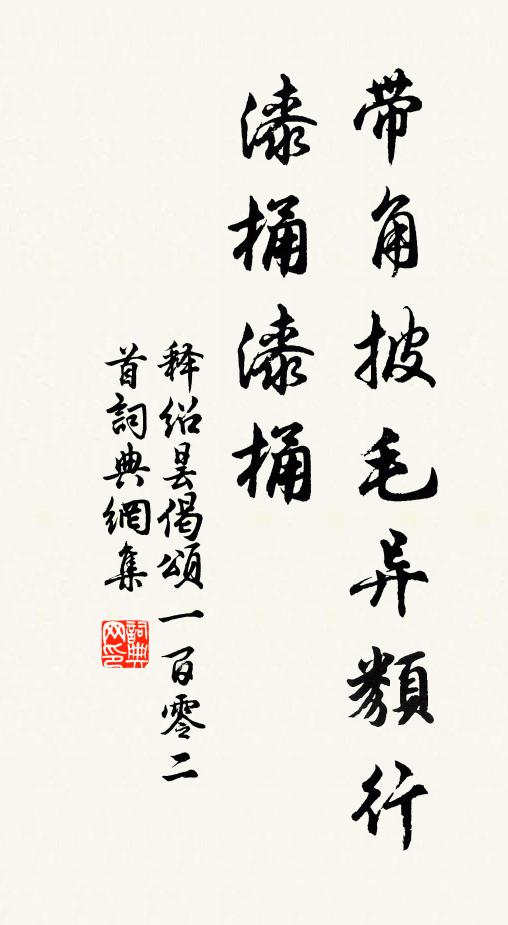 带角披毛异類行
漆桶漆桶
释绍昙偈頌一百零二
首詞典網集
詞典网印